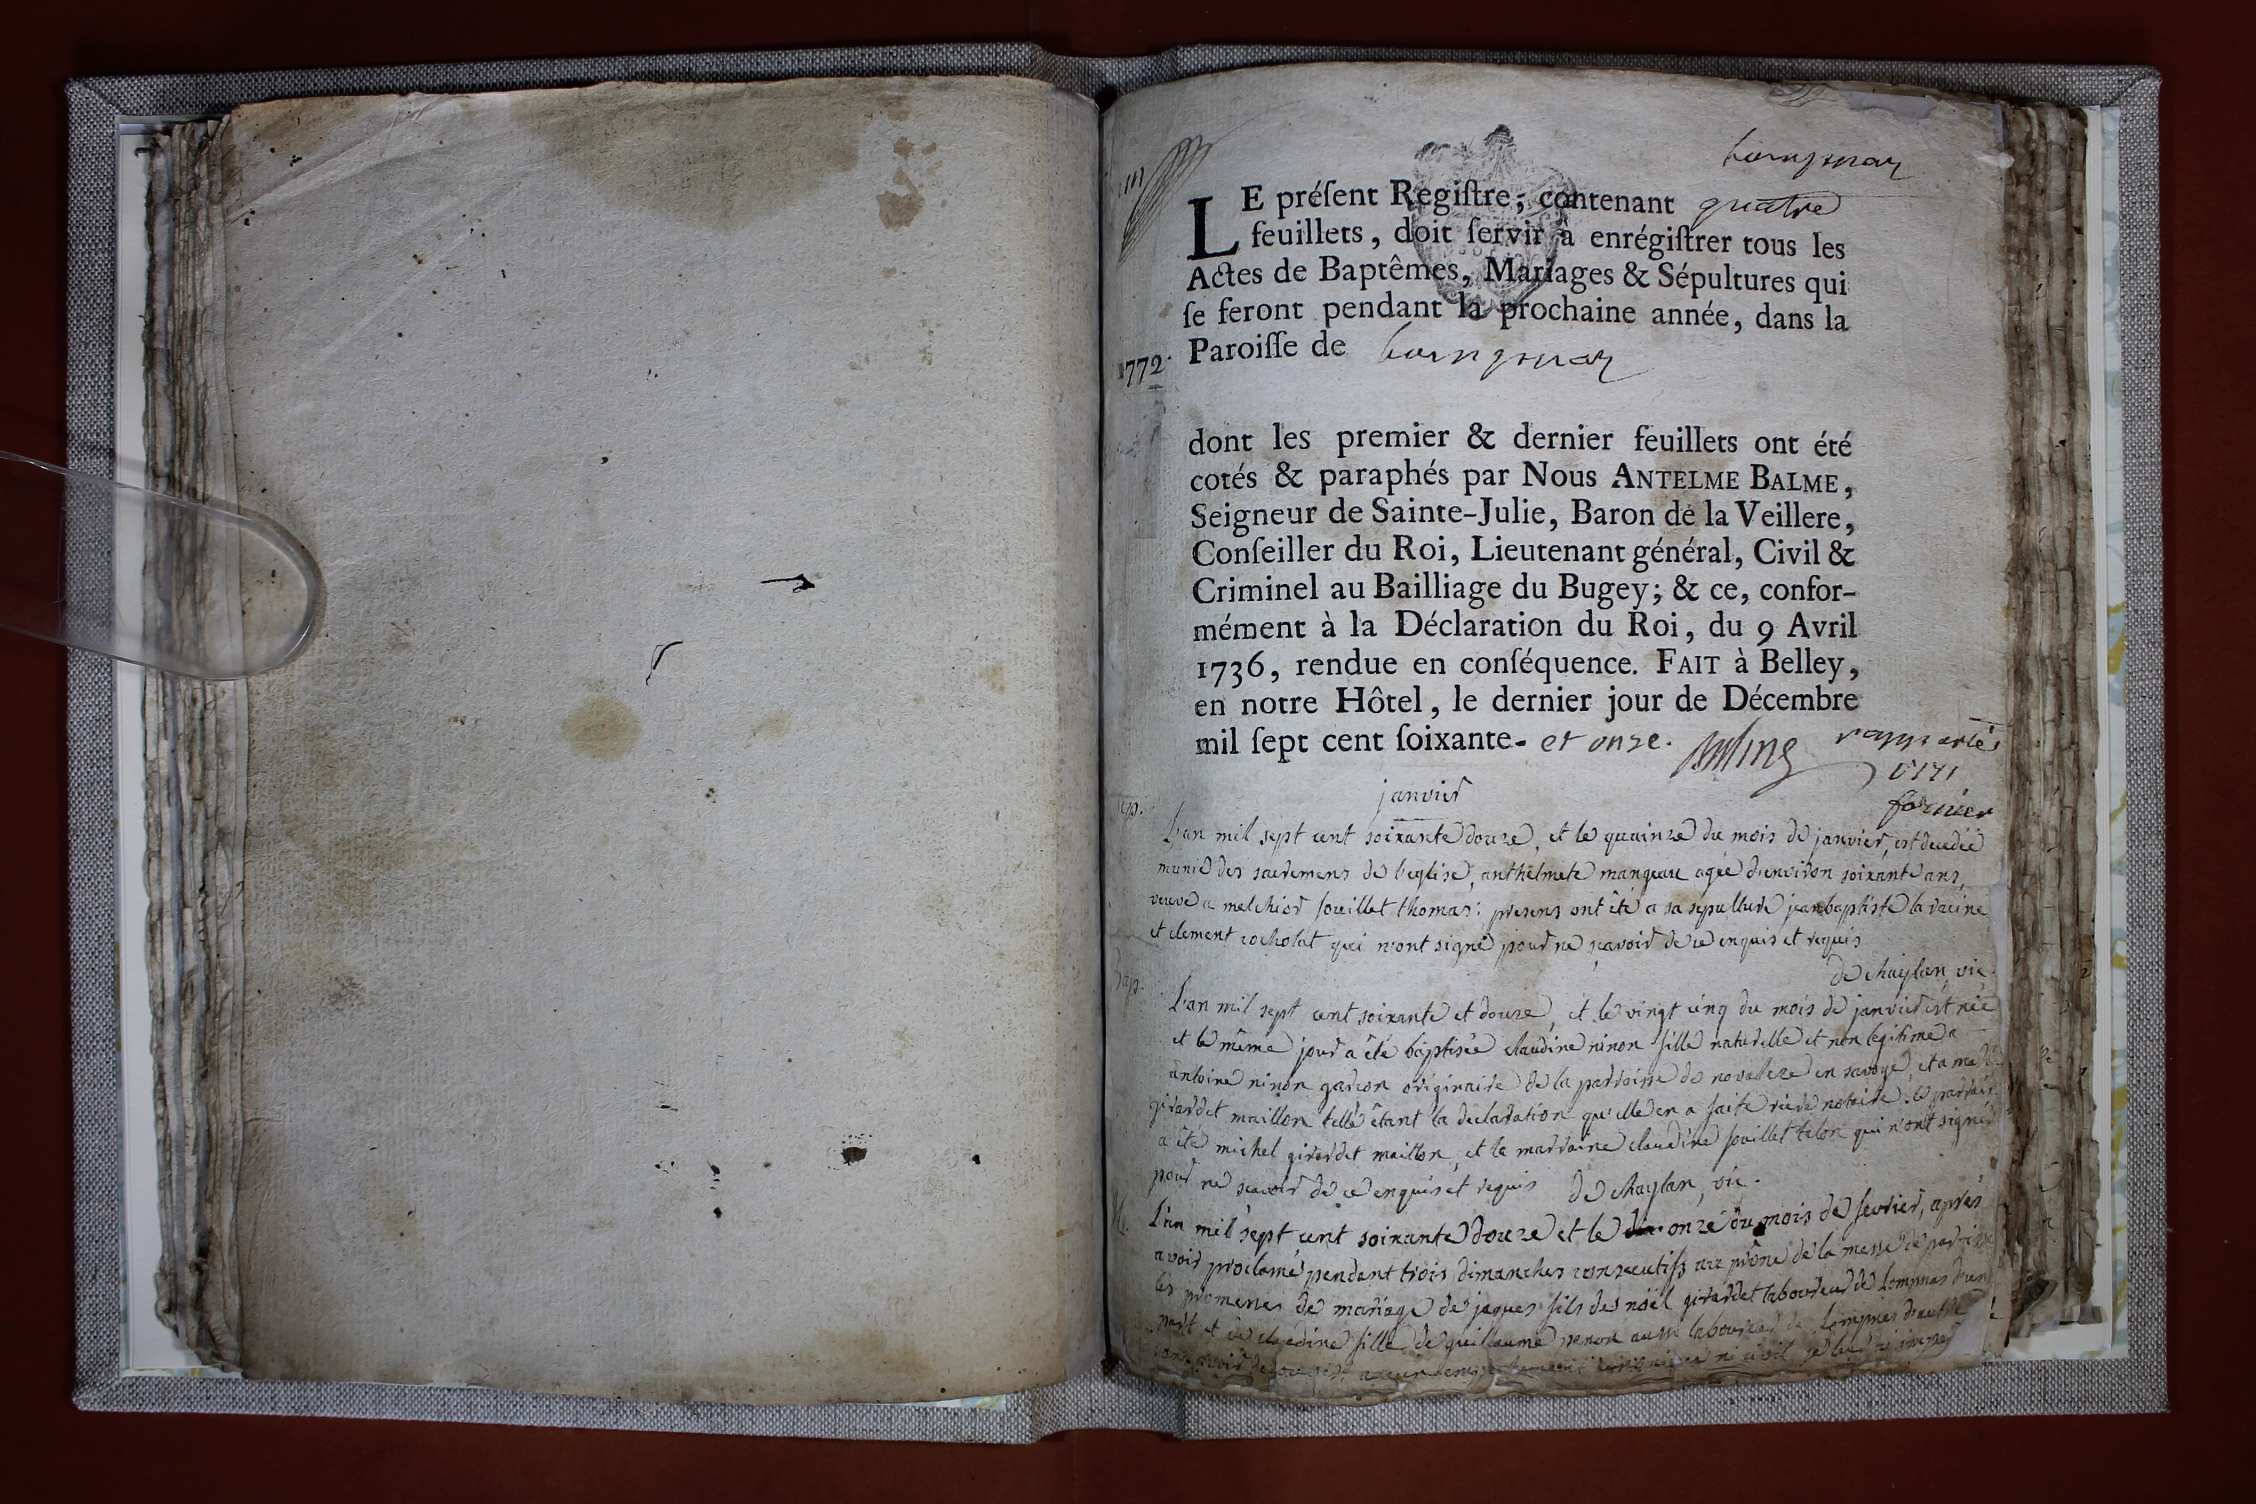 LE préſent Regiſtre, contenant quatre
feuillets, doit ſervir à enrégiſtrer tous les
Actes de Baptêmes, Mariages & Sépultures qui
ſe feront pendant la prochaine année, dans la
1772. Paroiſſe de
dont les premier & dernier feuillets ont été
cotés & paraphés par Nous ANTELME BALME,
Seigneur de Sainte-Julie, Baron de la Veillere,
Conſeiller du Roi, Lieutenant général, Civil &
Criminel au Bailliage du Bugey; & ce, confor-
mément à la Déclaration du Roi, du 9 Avril
1736, rendue en conſéquence. FAIT à Belley,
en notre Hôtel, le dernier jour de Décembre
mil ſept cent ſoixante- et onze.
janvier
L'an mil sept cent soixante douze, et le quinze du mois de janvier, est decedée
munie des sacremens de l'eglise, anthelmete mangeau agée d'environ soixante ans,
veuve a melchior souillet thomas: presens ont été a sa sepulture jean baptiste la racine
et clement cocholat qui n'ont signé pour ne sçavoir de ce enquis et requis
de chaylan, vic.
bap.
L'an mil sept cent soixante et douze, et le vingt cinq du mois de janvier est née
et le même jour a été baptisée claudine ninon fille naturelle et non legitime a
antoine ninon garcon originaire de la parroisse de novaleze en savoye, et a
girardet maillon telle étant la declaration qu'elle en a faite notaire, le parrain
a été michel girardet maillon, et la marraine claudine souillet talon qui n'ont signés
pour ne scavoir de ce enquis et requis de chaylan, vic.
L'an mil sept cent soixante douze et le onze du mois de fevrier, après
avoir proclamé pendant trois dimanches consecutifs au prône de la messe de parroisse
les promesses de mariage de jaques fils de noël girardet laboureur de lompnas d'une
part et de claudine fille de guillaume aussi laboureur de lompnas d'autre